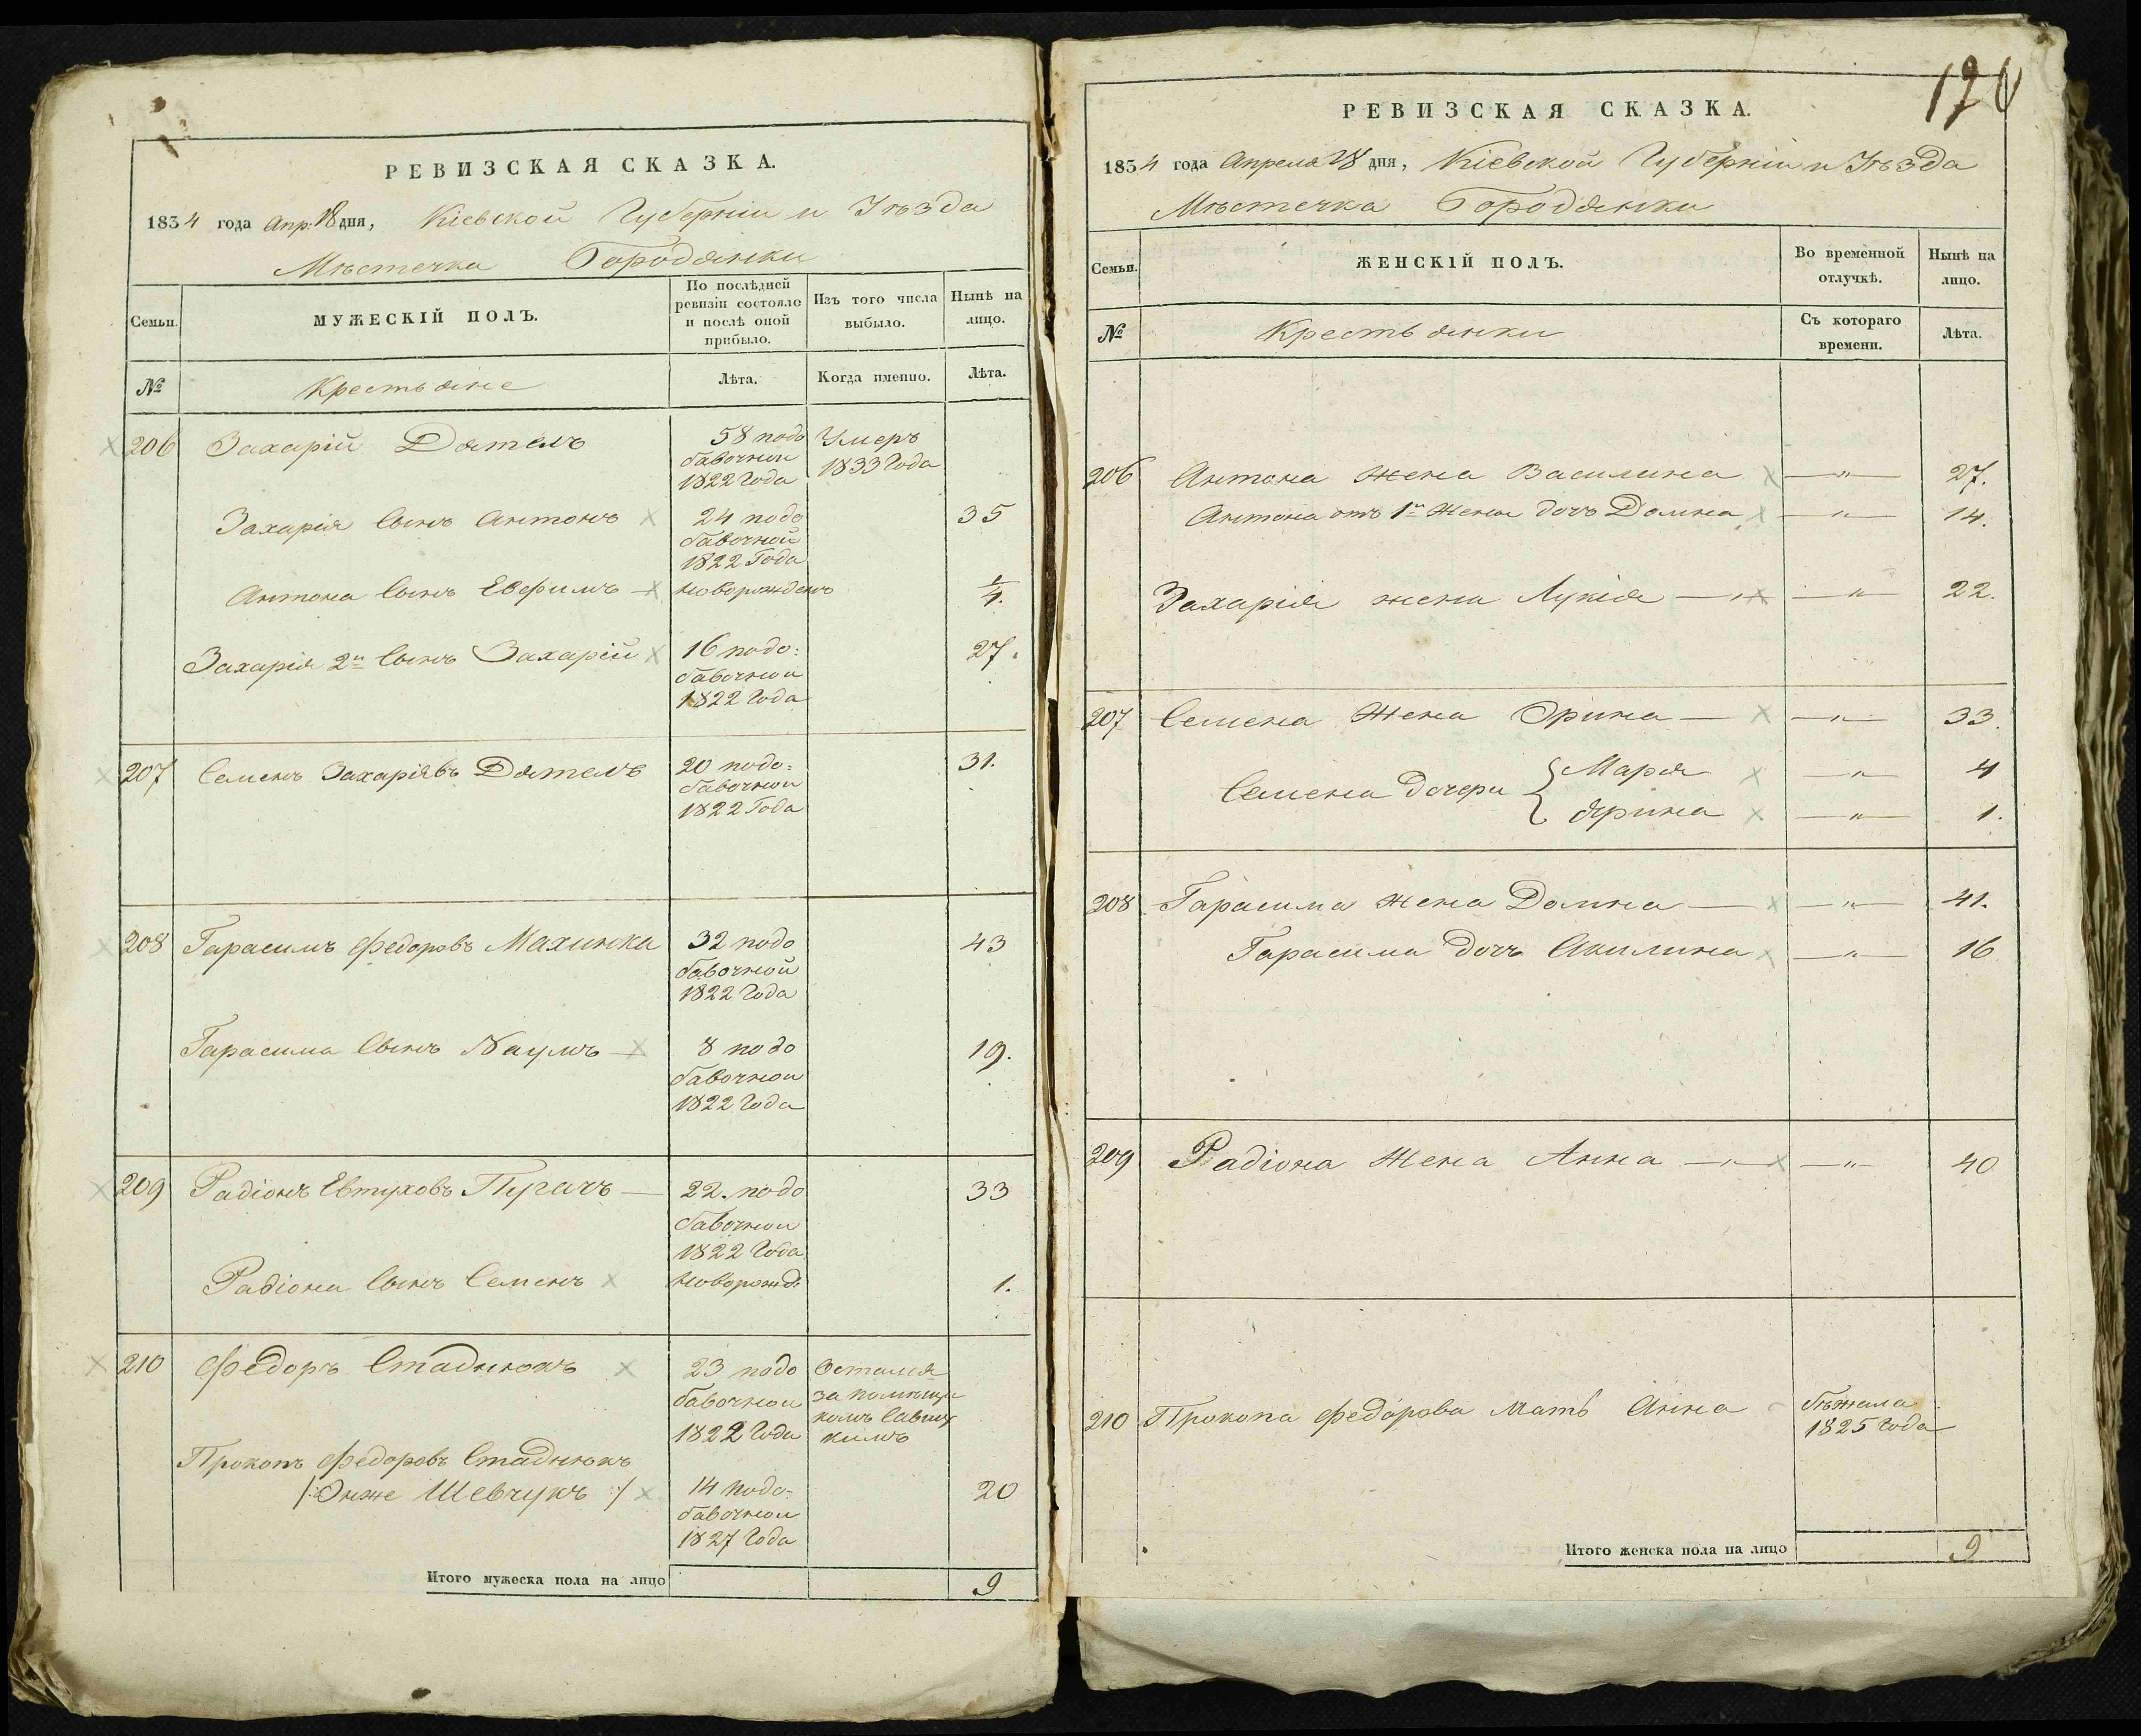 РЕВИЗСКАЯ СКАЗКА.
1834 года Апр: 18 дня, Кіевской Губерніи и Уѣзда
Мѣстечка Городянки
Семьи.
МУЖЕСКІЙ ПОЛЪ.
По послѣдней ревизіи состояло и послѣ оной прибыло.
Изъ того числа выбыло.
Нынѣ на лицо.
№
Крестьяне
Лѣта.
Когда именно.
Лѣта.
206 Захарій Дятелъ 58 подо Умеръ
бавочной 1833 Года
1822 Года
Захарія Сынъ Антонъ 24 подо 35
бавочной
1822 Года
Антона Сынъ Евфимъ новорожденъ 1/4.
Захарія 2й Сынъ Захарій 16 подо: 27.
бавочной
1822 Года
207 Семенъ Захаріявъ Дятелъ 20 подо: 31.
бавочной
1822 Года
208 Гарасимъ Федоровъ Махинка 32 подо 43
бавочной
1822 Года
Гарасима Сынъ Наумъ 8 подо 19.
бавочной
1822 Года
209 Радіонъ Евтуховъ Пугачъ 22. подо 33
бавочной
1822 Года
Радіона Сынъ Семенъ новорожд: 1.
210 Федоръ Стаднюкъ 23 подо Остался
бавочной за помѣщи
1822 Года комъ
Прокопъ Федоровъ Стаднюкъ
/:Онже Шевчукъ:/ 14 подо- 20
бавочной
1827 Года
Итого мужеска пола на лицо 9
РЕВИЗСКАЯ СКАЗКА.
1834 года Апреля 18 дня, Кіевской Губерніи и Уѣзда
Мѣстечка Городянки
Семьи.
ЖЕНСКІЙ ПОЛЪ.
Во временной отлучкѣ.
Нынѣ на лицо.
№
Крестьянки
Съ котораго времени.
Лѣта.
206 Антона жена Василина — " — 27.
Антона отъ 1й Жены дочь Домна — " — 14.
Захарія жена Лукія — " — 22.
207 Семена Жена Орина — " — 33.
Семена дочери { Марія — " — 4
Ярина — " — 1.
208 Гарасима жена Домна — " — 41.
Гарасима дочь Акилина — " — 16
209 Радіона Жена Анна — " — 40
210 Прокопа Федорова мать Анна бѣжала
1825 Года
Итого женска пола на лицо 9